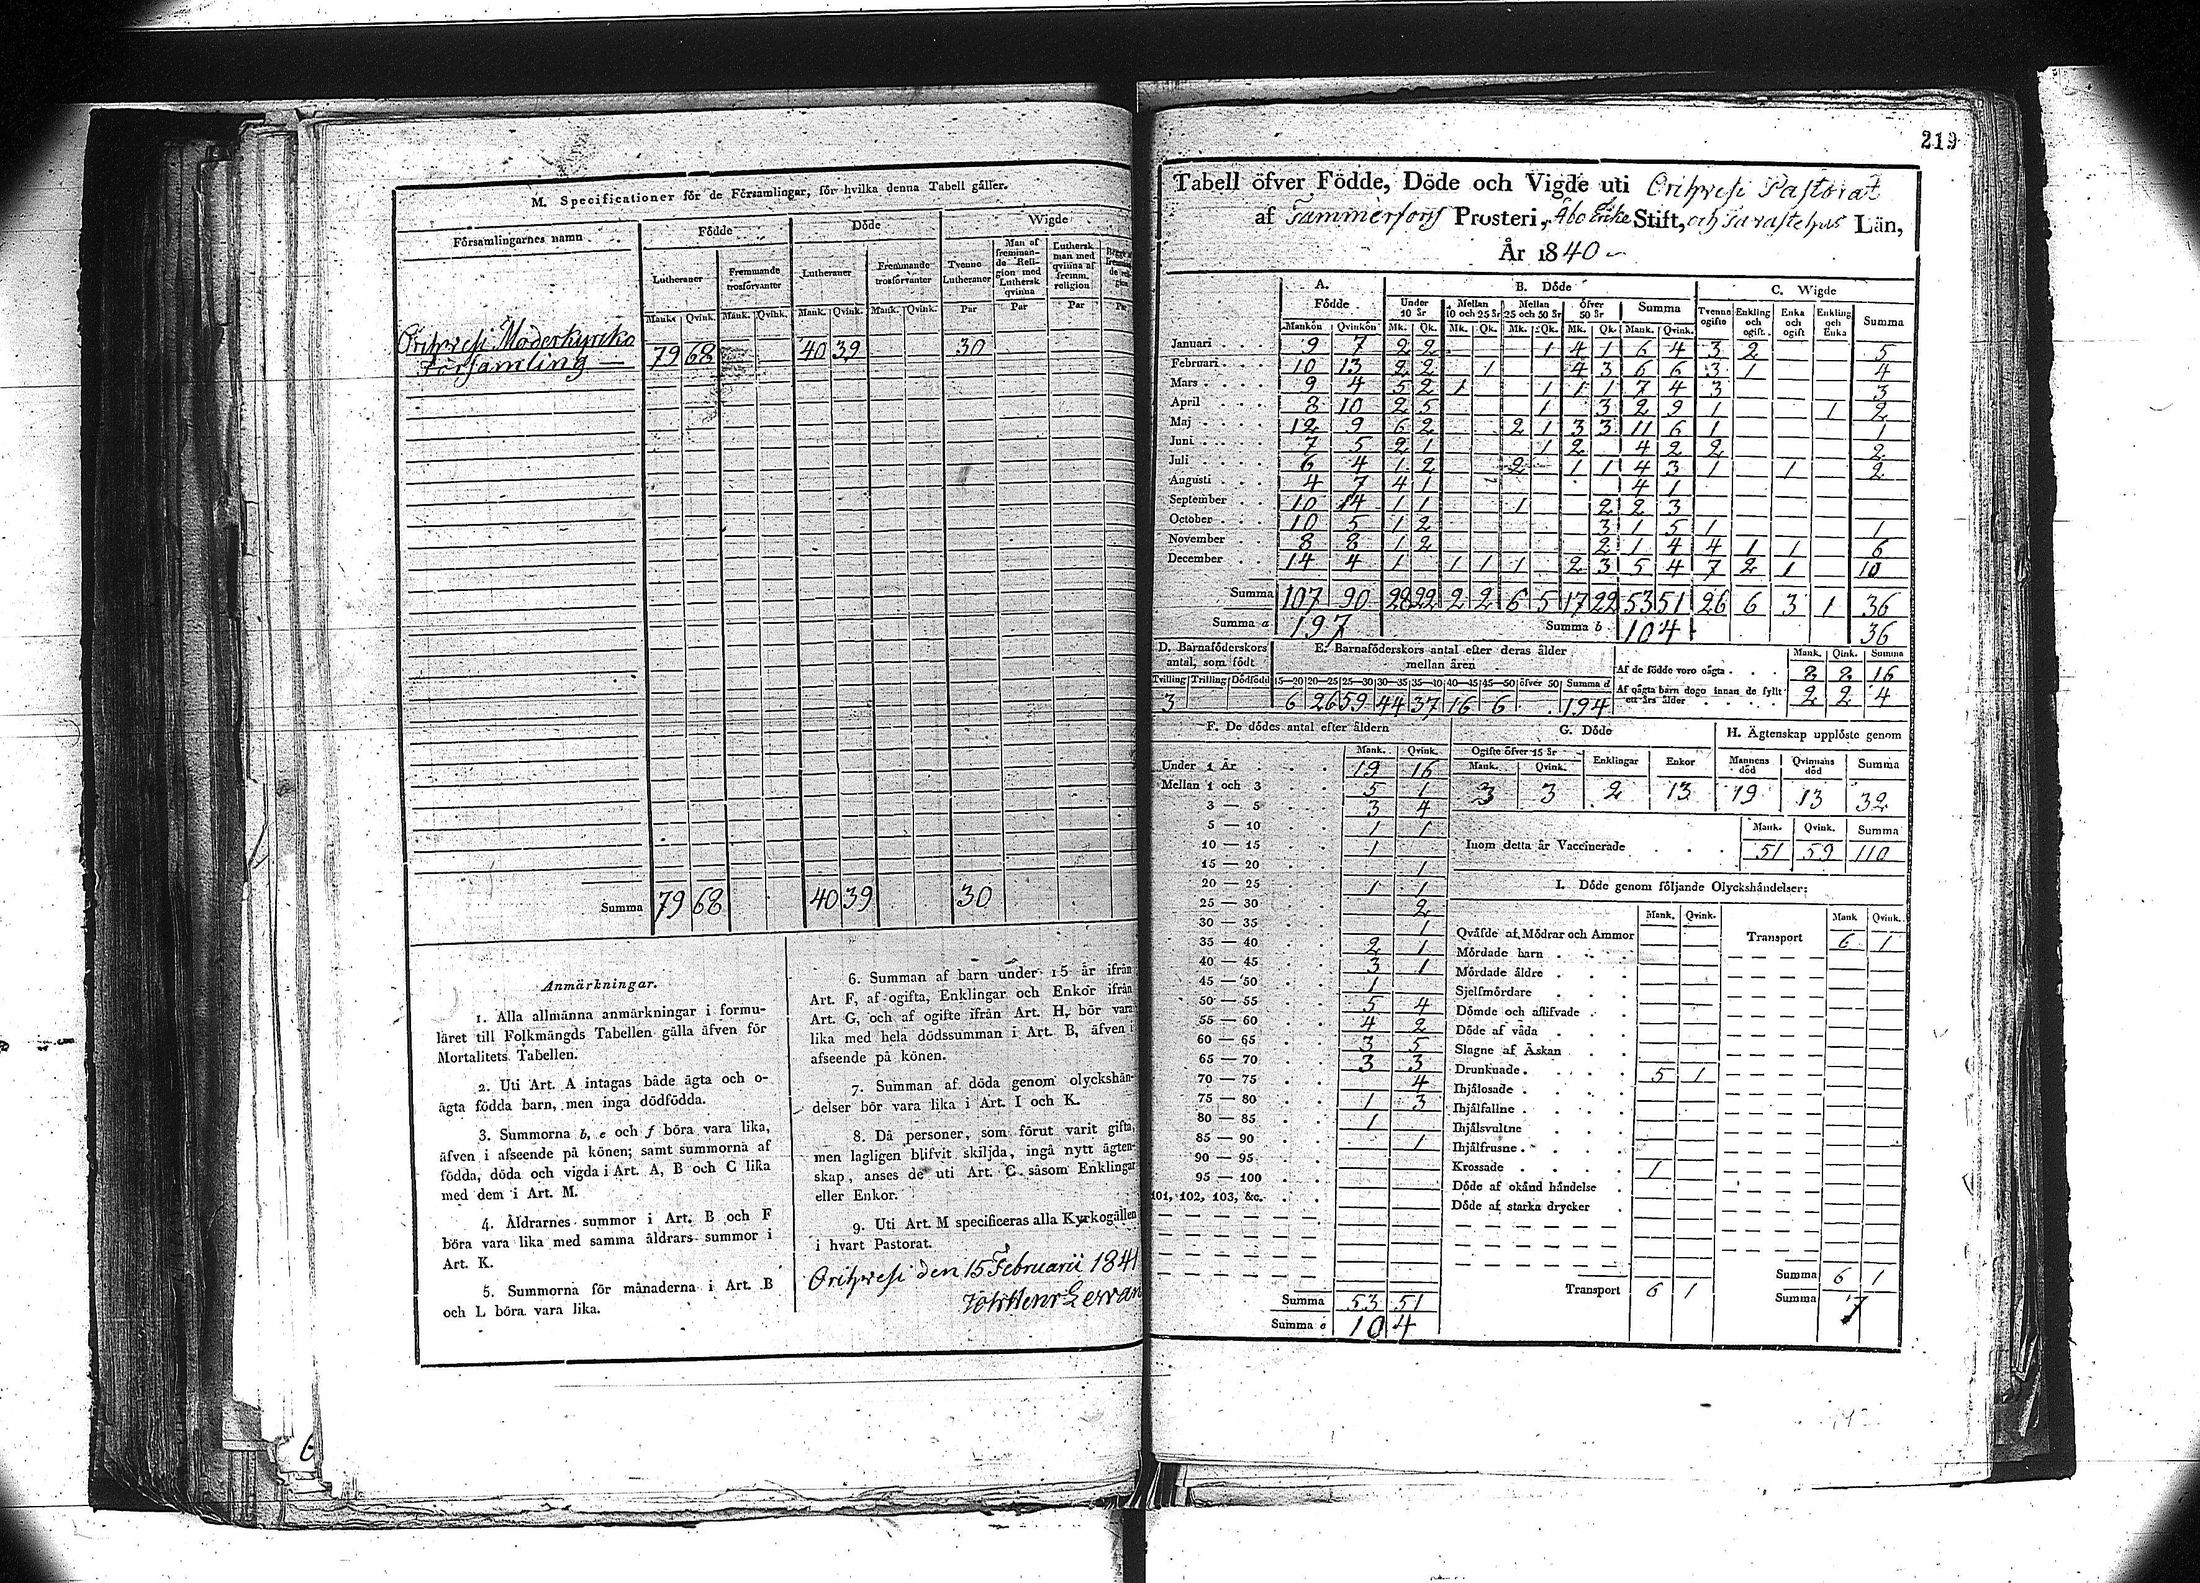 M. Specificationer för de Församlingar, för hvilka denna Tabell gäller.
Församlingarnes namn Födde Döde Wigde
Lutheraner Fremmande trosförvanter Lutheraner Fremmande trosförvanter Tvenne Lutheraner Man af fremmande Religion med Luthersk qvinna Luthersk man med qvinna af fremm. religion
Mank. Qvink. Mank. Qvink. Mank. Qvink. Mank. Qvink. Par Par Par Par
Orihvesi Moderkyrko
Församling 79 68 40 39 30
Summa 79 68 40 39 30
Anmärkningar.
1. Alla allmänna anmärkningar i formu-
läret till Folkmängds Tabellen gälla äfven för
Mortalitets Tabellen.
2. Uti Art. A intagas både ägta och o-
ägta födda barn, men inga dödfödda.
3. Summorna b, e och f böra vara lika,
äfven i afseende på könen; samt summorna af
födda, döda och vigda i Art. A, B och C lika
med dem i Art. M.
4. Åldrarnes summor i Art. B och F
böra vara lika med samma åldrars summor i
Art. K.
5. Summorna för månaderna i Art. B
och L böra vara lika.
6. Summan af barn under 15 år ifrån
Art. F, af ogifta, Enklingar och Enkor ifrån
Art. G, och af ogifte ifrån Art. H, bör vara
lika med hela dödssumman i Art. B, äfven i
afseende på könen.
7. Summan af döda genom olyckshän-
delser bör vara lika i Art. I och K.
8. Då personer, som förut varit gifta,
men lagligen blifvit skiljda, ingå nytt ägten-
skap, anses de uti Art. C såsom Enklingar
eller Enkor.
9. Uti Art. M specificeras alla Kyrkogällen
i hvart Pastorat.
Orihvesi den 15 Februarii 1841
219
Tabell öfver Födde, Döde och Vigde uti Orihvesi Pastorat
af Tammerfors Prosteri, Åbo Erke Stift, och Tavastehus Län,
År 1840
A. Födde B. Döde C. Wigde
Under 10 år Mellan 10 och 25 år Mellan 25 och 50 år öfver 50 år Summa Tvenne ogifte Enkling och ogift. Enka och ogift Enkling och Enka Summa
Mankön Qvinkön Mk. Qk. Mk. Qk. Mk. Qk. Mk. Qk. Mank. Qvink.
Januari 9 7 2 2 1 4 1 6 4 3 2 5
Februari 10 13 2 2 1 4 3 6 6 3 1 4
Mars 9 4 5 2 1 1 1 1 7 4 3 3
April 8 10 2 5 1 3 2 9 1 1 2
Maj 12 9 6 2 2 1 3 3 11 6 1 1
Juni 7 5 2 1 1 2 4 2 2 2
Juli 6 4 1 2 2 1 1 4 3 1 1 2
Augusti 4 7 4 1 4 1
September 10 14 1 1 1 2 2 3
October 10 5 1 2 3 1 5 1 1
November 8 8 1 2 2 1 4 4 1 1 6
December 14 4 1 1 1 1 2 3 5 4 7 2 1 10
Summa 107 90 28 22 2 2 6 5 17 22 53 51 26 6 3 1 36
Summa a 197 Summa b 104 36
D. Barnaföderskors antal, som födt
Tvilling Trilling Dödfödd
3
E. Barnaföderskors antal efter deras ålder mellan åren
15—20 20—25 25—30 30—35 35—40 40—45 45—50 öfver 50 Summa d
6 26 59 44 37 16 6 194
Mank. Qink. Summa
Af de födde voro oägta 8 8 16
Af oägta barn dogo innan de fyllt ett års ålder 2 2 4
F. De dödes antal efter åldern
Mank. Qvink.
Under 1 År 19 16
Mellan 1 och 3 5 1
3 — 5 3 4
5 — 10 1 1
10 — 15 1
15 — 20 1
20 — 25 1 1
25 — 30 2
30 — 35 1
35 — 40 2 1
40 — 45 3 1
45 — 50 1
50 — 55 5 4
55 — 60 4 2
60 — 65 3 5
65 — 70 3 3
70 — 75 4
75 — 80 1 3
80 — 85 1
85 — 90 1
90 — 95
95 — 100
101, 102, 103, &c.
Summa 53 51
Summa e 104
G. Döde
Ogifte öfver 15 år Enklingar Enkor
Mank. Qvink.
3 3 2 13
H. Ägtenskap upplöste genom
Mannens död Qvinnans död Summa
19 13 32
Mank. Qvink. Summa
Inom detta år Vaccinerade 51 59 110
I. Döde genom följande Olyckshändelser:
Mank. Qvink. Mank Qvink.
Qväfde af Mödrar och Ammor Transport 6 1
Mördade barn
Mördade äldre
Sjelfmördare
Dömde och aflifvade
Döde af våda
Slagne af Åskan
Drunknade 5 1
Ihjälosade
Ihjälfallne
Ihjälsvultne
Ihjälfrusne
Krossade 1
Döde af okänd händelse
Döde af starka drycker
Transport 6 1
Summa 6 1
Summa 7